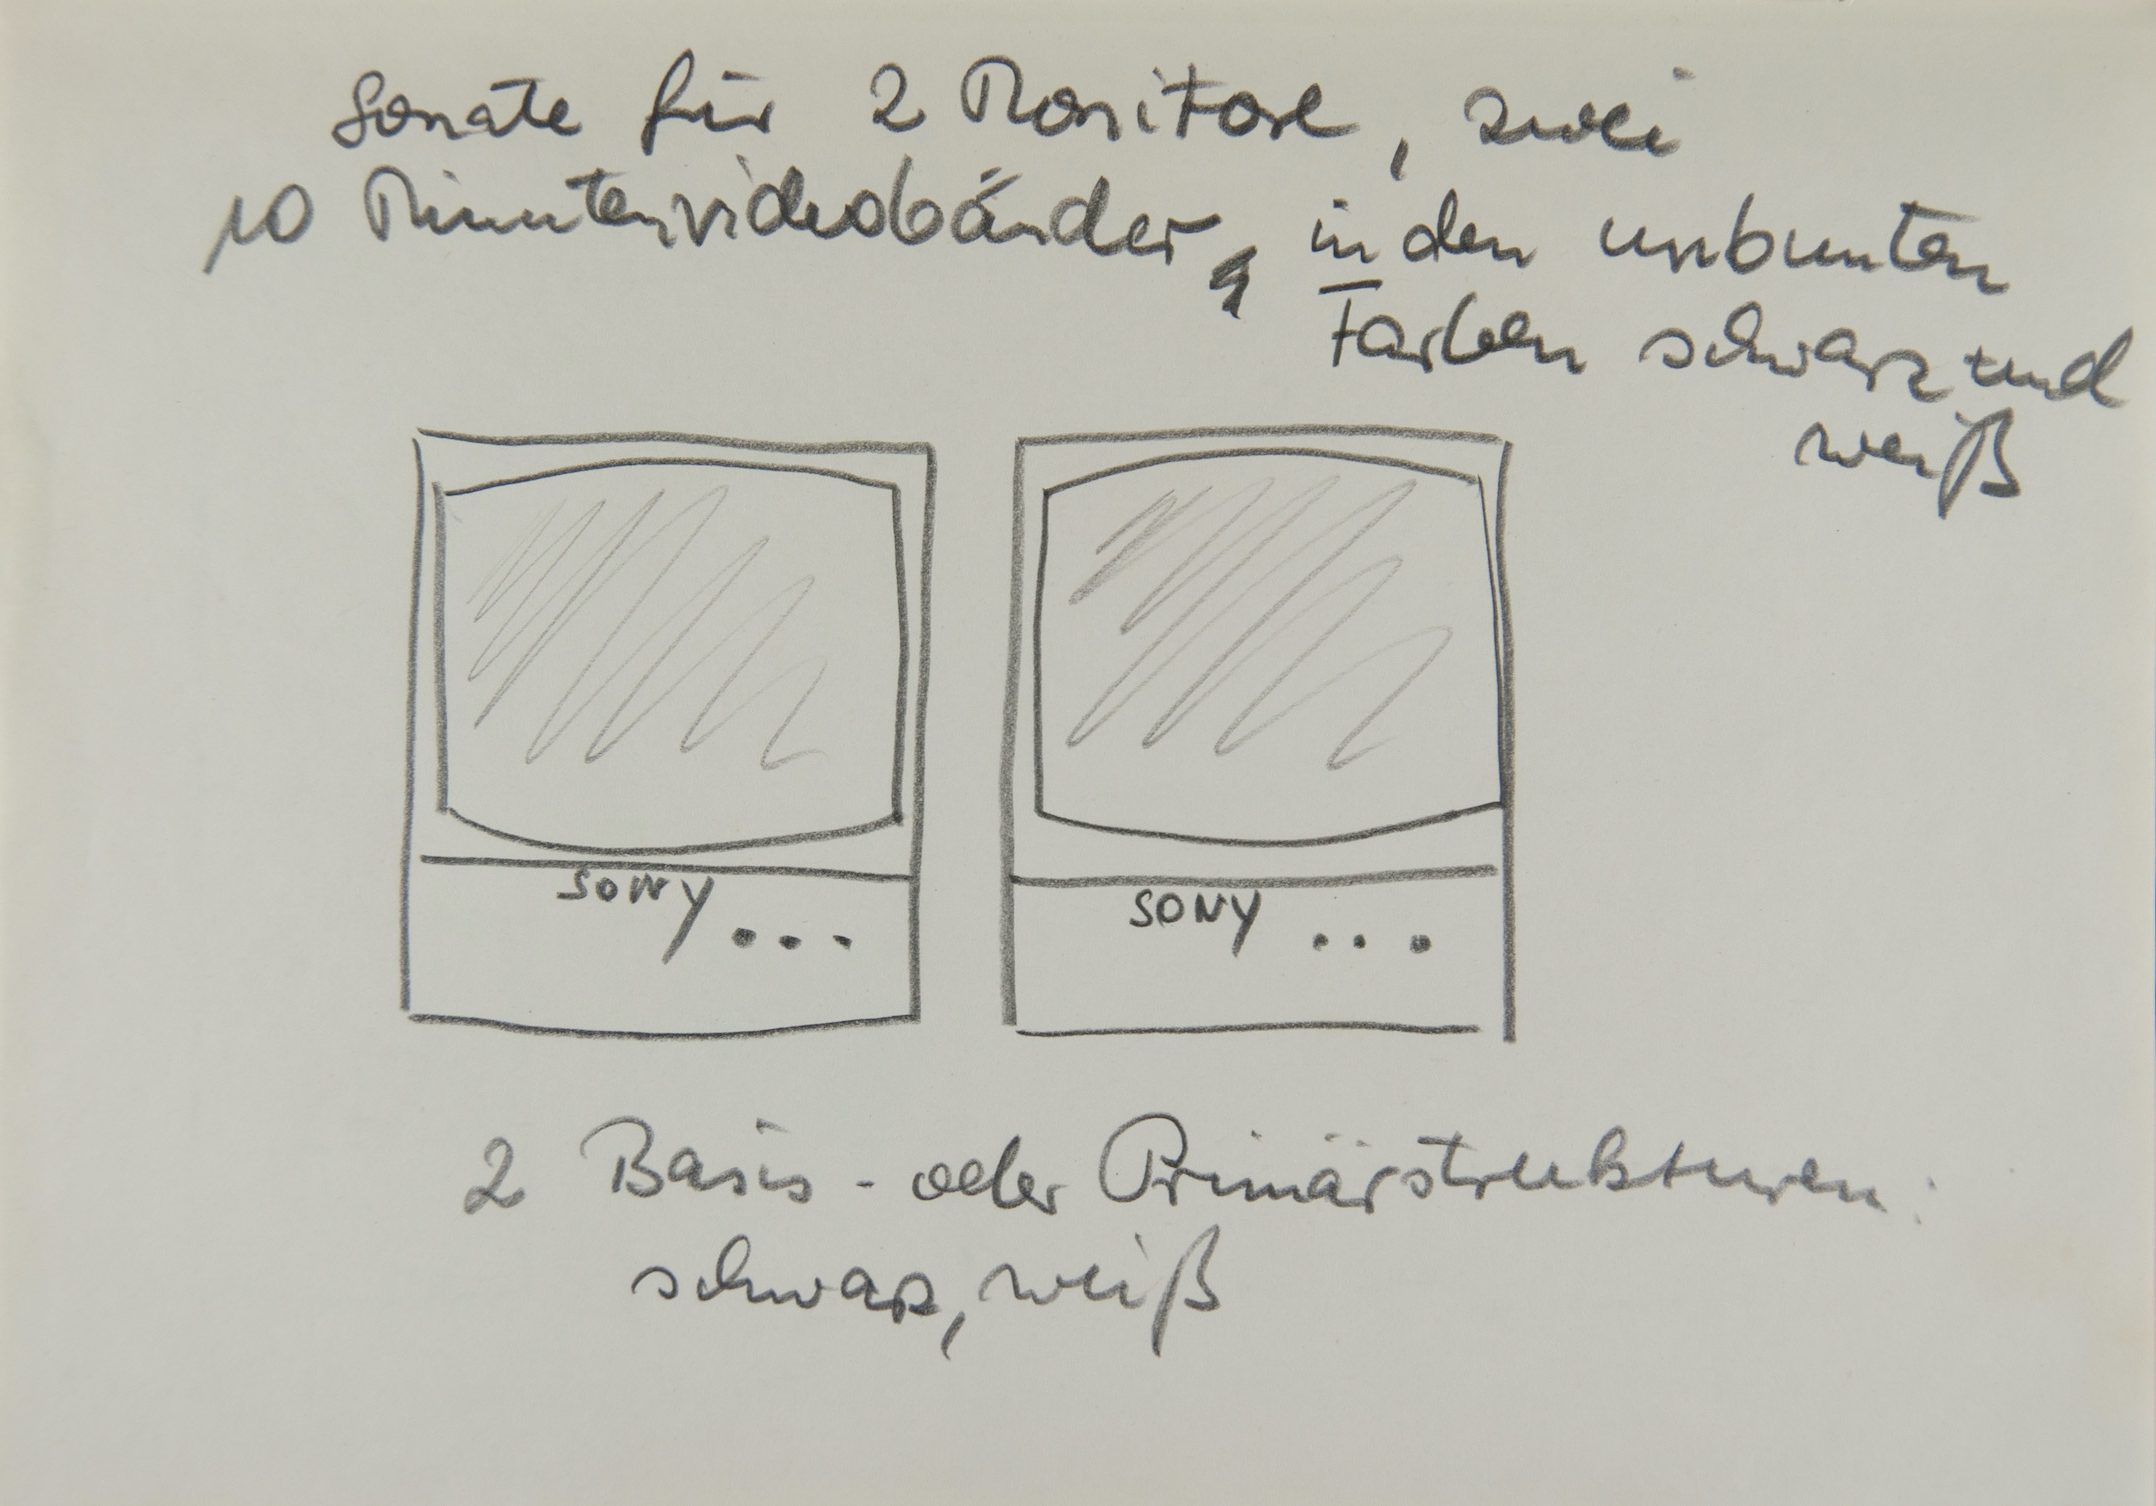 Sonate für 2 Monitore, zwei
10 Minutenvideobänder, in den unbunten
Farben schwarz und
weiß
SONY ...
SONY ...
2 Basis- oder Primärstrukturen:
schwarz, weiß